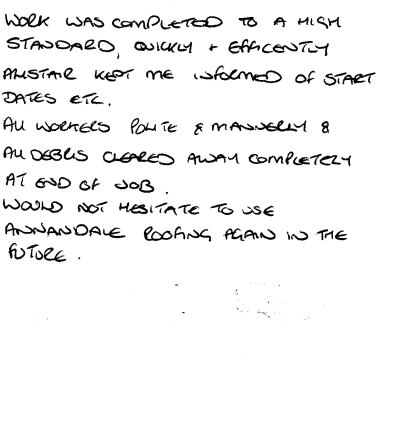 WORK WAS COMPLETED TO A HIGH
STANDARD, QUICKLY + EFFICENTLY
ALISTAIR KEPT ME INFORMED OF START
DATES ETC.
ALL WORKERS POLITE & MANNERLY &
ALL DEBRIS CLEARED AWAY COMPLETELY
AT END OF JOB.
WOULD NOT HESITATE TO USE
ANNANDALE ROOFING AGAIN IN THE
FUTURE.